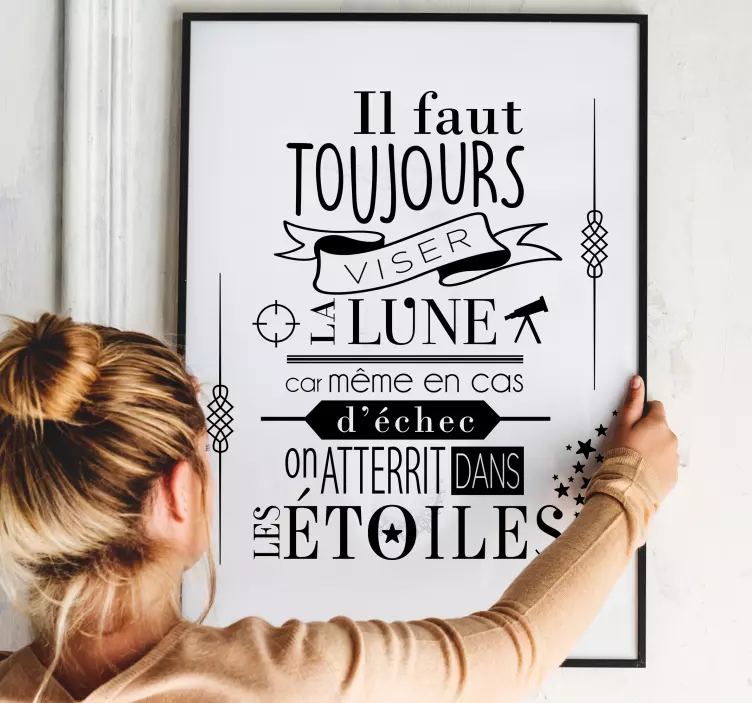 Il faut
TOUJOURS
VISER
LA LUNE
car même en cas
d'échec
on ATTERRIT DANS
LES ÉTOILES